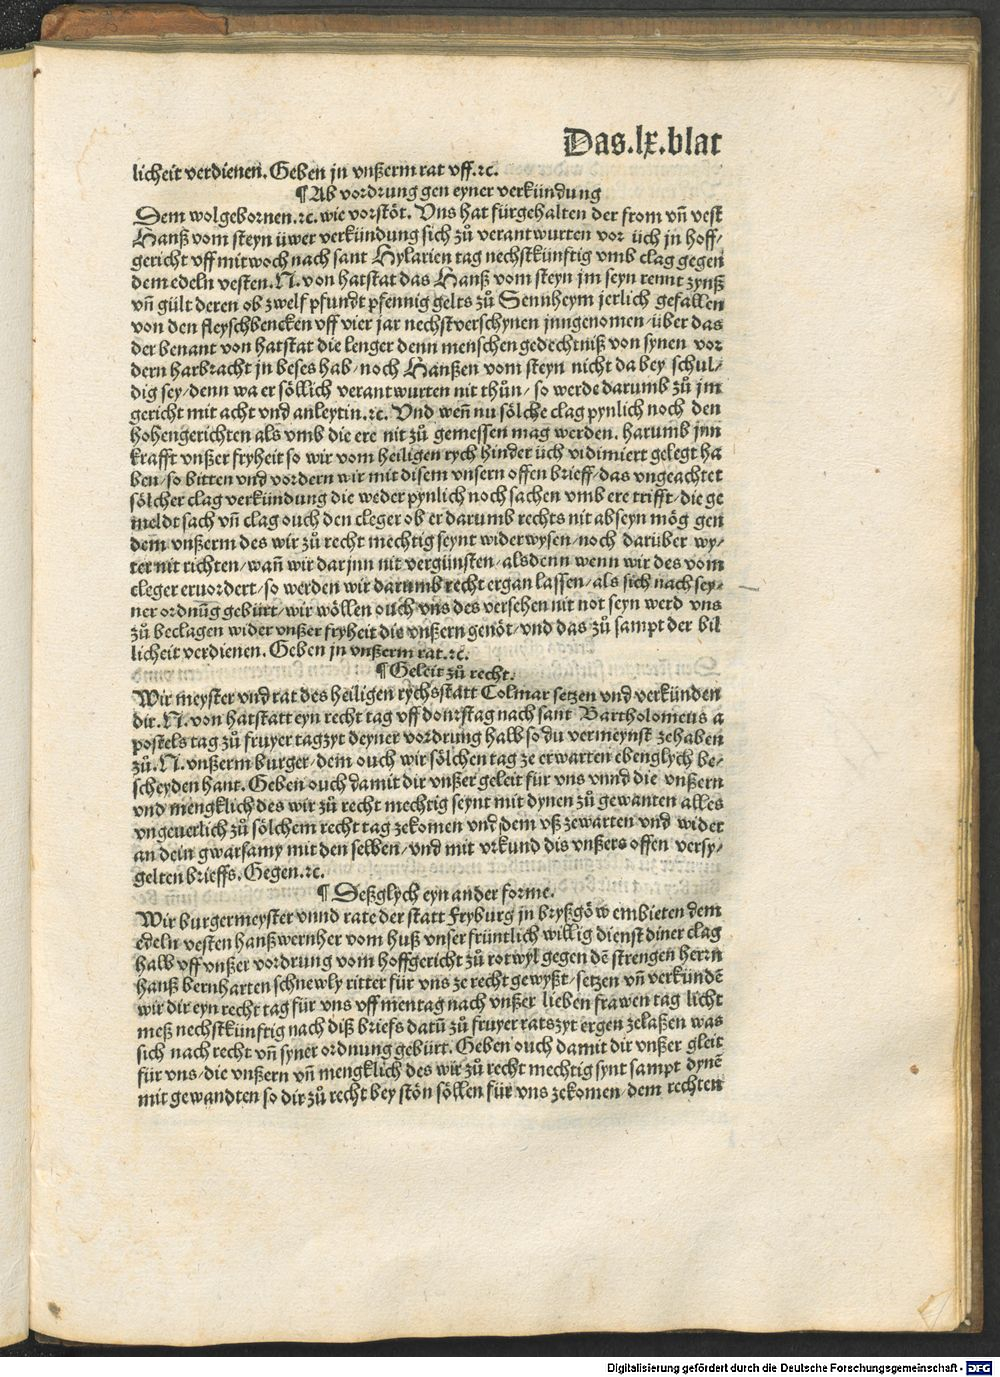 Das.lx.blat
licheit verdienen. Geben jn vnßerm rat vff.ꝛc.
¶ Ab vordrung gen eyner verkündung
Dem wolgebornen.ꝛc. wie vorstöt. Vns hat fürgehalten der from vñ vest
Hanß vom steyn üwer verkündung sich zů verantwurten vor üch jn hoff/
gericht vff mitwoch nach sant Hylarien tag nechstkünftig vmb clag gegen
dem edeln vesten. N. von hatstat das Hanß vom steyn jm seyn rennt zynß
vñ gült deren ob zwelf pfundt pfennig gelts zů Sennheym jerlich gefallen
von den fleyschbencken vff vier jar nechstverschynen jnngenomen/über das
der benant von hatstat die lenger denn menschen gedechtniß von synen vor
dern harbracht jn beses hab/noch Hanßen vom steyn nicht da bey schul/
dig sey/denn wa er söllich verantwurten nit thůn/so werde darumb zů jm
gericht mit acht vnd anleytin.ꝛc. Vnd weñ nu sölche clag pynlich noch den
hohengerichten als vmb die ere nit zů gemessen mag werden. harumb jnn
krafft vnßer fryheit so wir vom heiligen rych hinder üch vidimiert gelegt ha
ben/so bitten vnd vordern wir mit disem vnsern offen brieff/das vngeachtet
sölcher clag verkündung die weder pynlich noch sachen vmb ere trifft/die ge
meldt sach vñ clag ouch den cleger ob er darumb rechts nit abseyn mög gen
dem vnßerm des wir zů recht mechtig seynt widerwysen/noch darüber wy/
ter nit richten/wañ wir dar jnn nit vergünsten/alsdenn wenn wir des vom
cleger ervordert/so werden wir darumb recht ergan lassen/als sich nach sey/
ner ordnũg gebürt/wir wöllen ouch vns des versehen nit not seyn werd vns
zů beclagen wider vnßer fryheit die vnßern genöt/vnd das zů sampt der bil
licheit verdienen. Geben jn vnßerm rat.ꝛc.
¶ Geleit zů recht.
Wir meyster vnd rat des heiligen rychsstatt Colmar setzen vnd verkünden
dir. N. von hatstatt eyn recht tag vff donrstag nach sant Bartholomeus a
postels tag zů fruyer tagzyt deyner vordrung halb so du vermeynst zehaben
zů. N. vnßerm burger/dem ouch wir sölchen tag ze erwarten ebenglych be/
scheyden hant. Geben ouch damit dir vnßer geleit für vns vnnd die vnßern
vnd mengklich des wir zů recht mechtig seynt mit dynen zů gewanten alles
vngeuerlich zů sölchem recht tag zekomen vnd dem vß zewarten vnd wider
an dein gwarsamy mit den selben/vnd mit vrkund dis vnßers offen versy/
gelten brieffs. Gegen.ꝛc.
¶ Deßglych eyn ander forme.
Wir burgermeyster vnnd rate der statt Fryburg jn bryßgöw embieten dem
edeln vesten hanß wernher vom huß vnser früntlich willig dienst diner clag
halb vff vnßer vordrung vom hoffgericht zů rotwyl gegen dẽ strengen herrn
hanß bernharten schnewly ritter für vns ze recht gewyßt/setzen vñ verkündẽ
wir dir eyn recht tag für vns vff mentag nach vnßer lieben frawen tag liecht
meß nechstkünftig nach diß briefs datũ zů fruyer ratszyt ergen zelaßen was
sich nach recht vñ syner ordnung gebürt. Geben ouch damit dir vnßer gleit
für vns/die vnßern vñ mengklich des wir zů recht mechtig synt sampt dynẽ
mit gewandten so dir zů recht bey stön söllen für vns zekomen/dem rechten
Digitalisierung gefördert durch die Deutsche Forschungsgemeinschaft - DFG